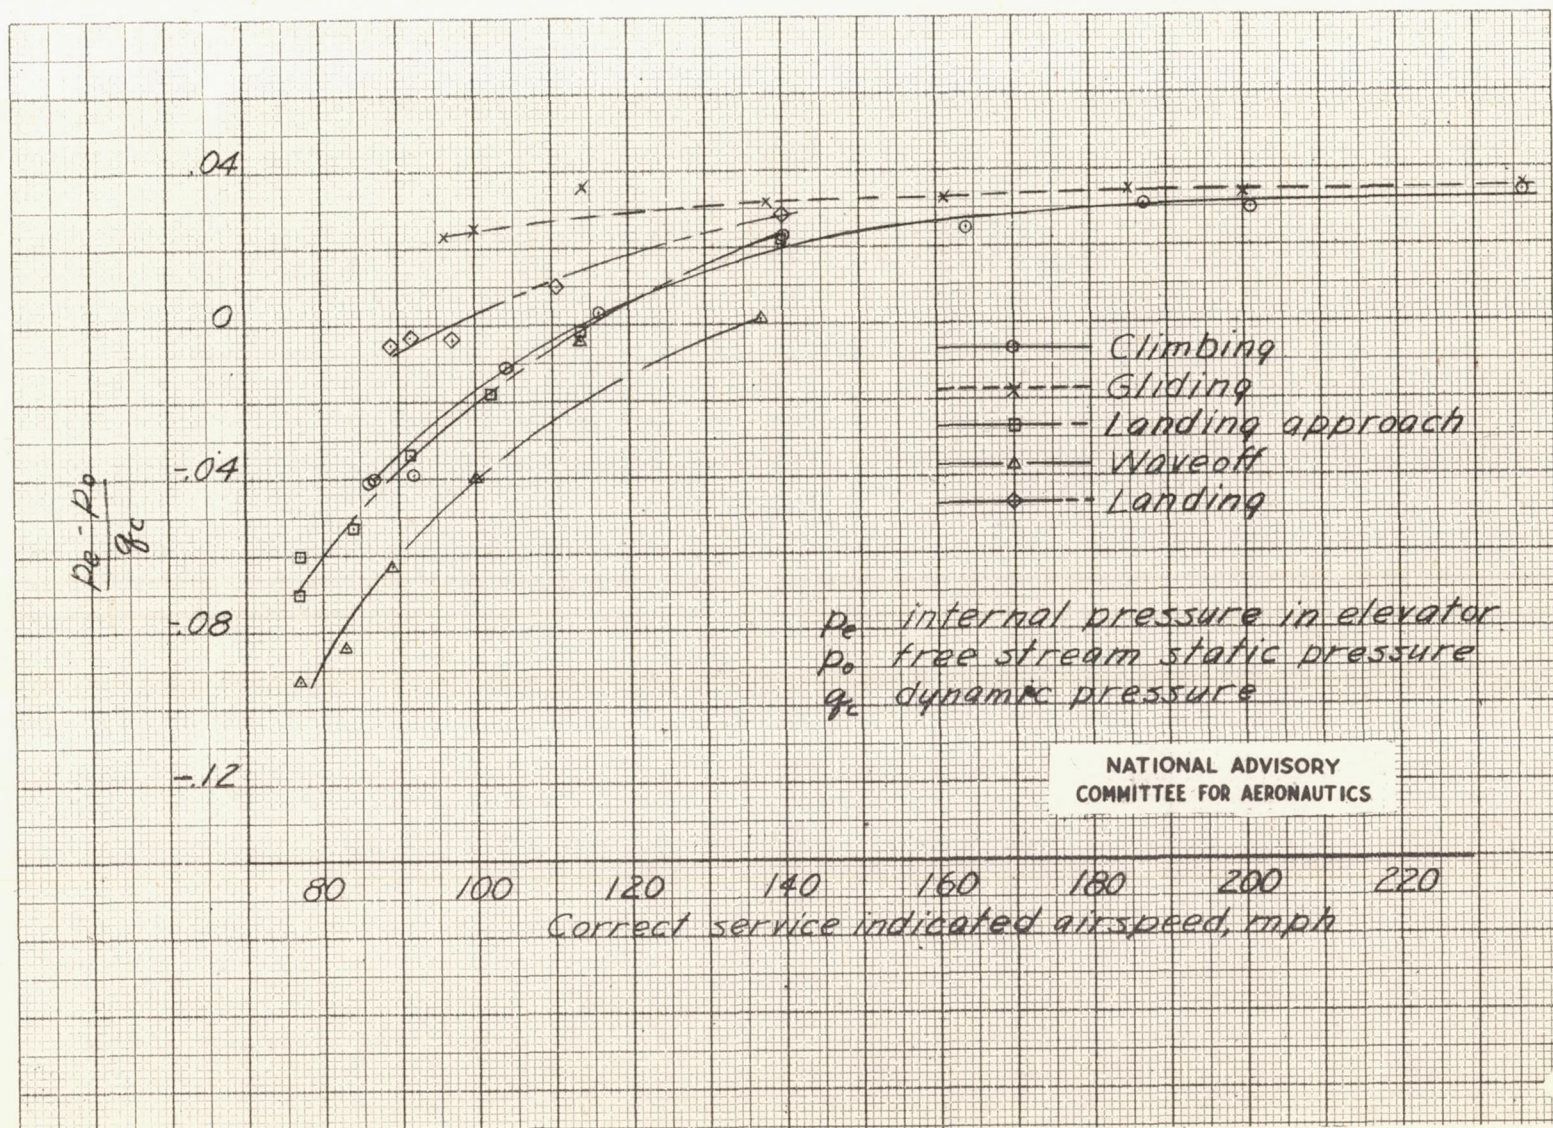 .04
0
-.04
-.08
-.12
pe - po
qc
Climbing
Gliding
Landing approach
Waveoff
Landing
pe internal pressure in elevator
po free stream static pressure
qc dynamic pressure
NATIONAL ADVISORY
COMMITTEE FOR AERONAUTICS
80 100 120 140 160 180 200 220
Correct service indicated airspeed, mph